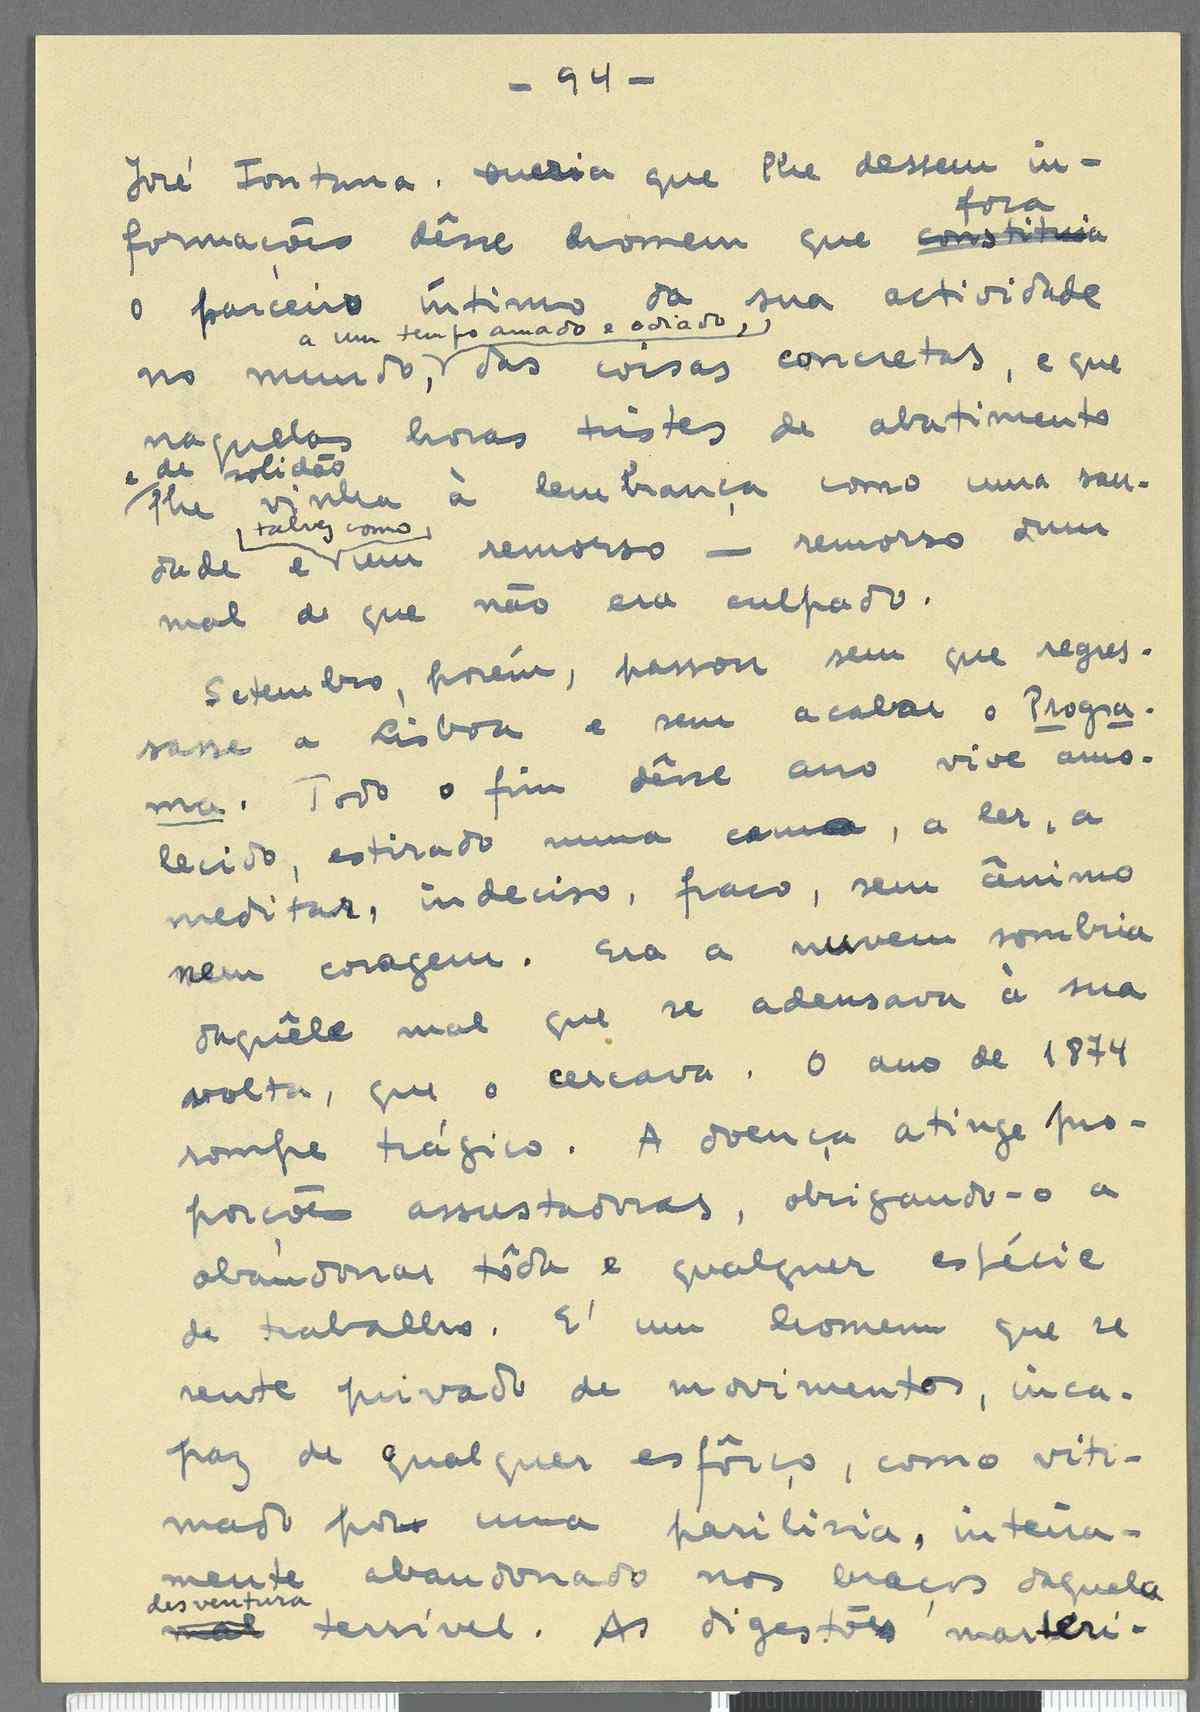 - 94 -
José Fontana. Queria que lhe dessem in-
fora
formações dêsse homem que constituia
o parceiro íntimo da sua actividade
a um tempo amado e odiado,
no mundo, das coisas concretas, e que
naquelas horas tristes de abatimento
e de solidão
lhe vinha à lembrança como uma sau-
talvez como
dade e um remorso — remorso dum
mal de que não era culpado.
Setembro, porém, passou sem que regres-
sasse a Lisboa e sem acabar o Progra-
ma. Todo o fim dêsse ano vive amo-
lecido, estirado numa cama, a ler, a
meditar, indeciso, fraco, sem ânimo
nem coragem. Era a nuvem sombria
daquêle mal que se adensava à sua
volta, que o cercava. O ano de 1874
rompe trágico. A doença atinge pro-
porções assustadoras, obrigando-o a
abandonar tôda e qualquer espécie
de trabalho. E' um homem que se
sente privado de movimentos, inca-
paz de qualquer esfôrço, como viti-
mado por uma parilisia, inteira-
mente abandonado nos braços daquela
desventura
mal terrível. As digestões marteri-